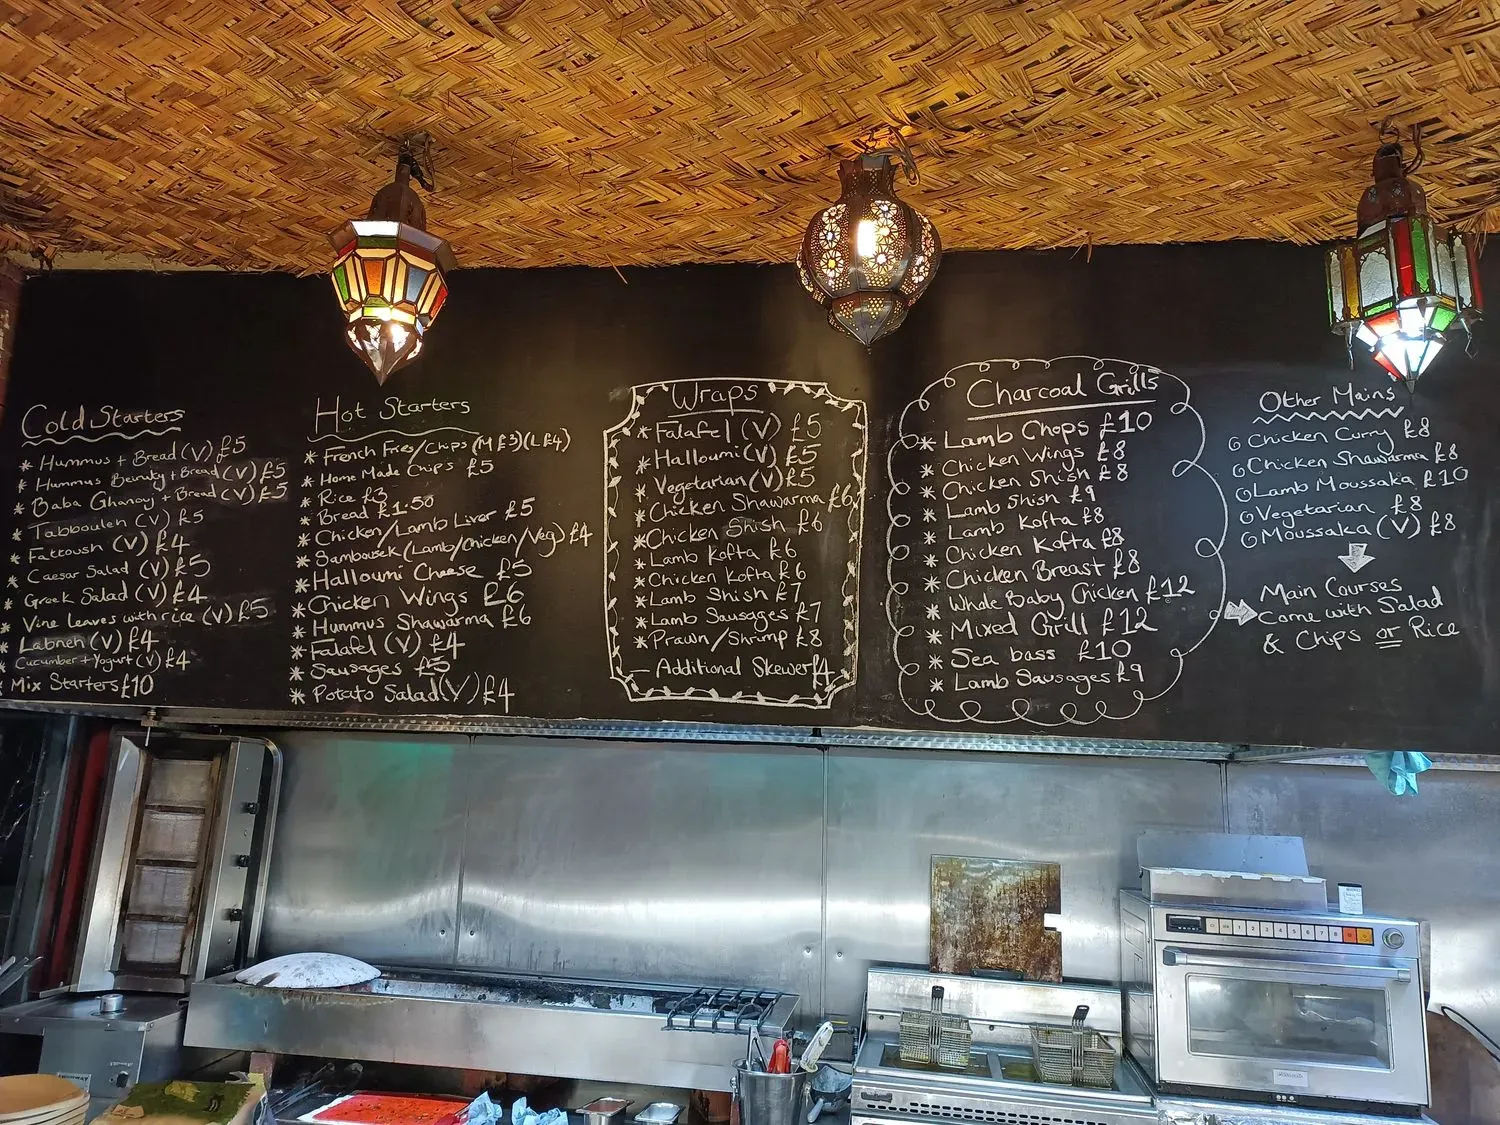 Cold Starters
* Hummus + Bread (V) £5
* Hummus Beiruty + Bread (V) £5
* Baba Ghanouj + Bread (V) £5
* Tabbouleh (V) £5
* Fattoush (V) £4
* Caesar Salad (V) £5
* Greek Salad (V) £4
* Vine leaves with rice (V) £5
* Labneh (V) £4
* Cucumber + Yogurt (V) £4
* Mix Starters £10
Hot Starters
* French Fries/Chips (M £3) (L £4)
* Home Made Chips £5
* Rice £3
* Bread £1.50
* Chicken/Lamb Liver £5
* Sambousek (Lamb/Chicken/Veg) £4
* Halloumi Cheese £5
* Chicken Wings £6
* Hummus Shawarma £6
* Falafel (V) £4
* Sausages £5
* Potato Salad (V) £4
Wraps
* Falafel (V) £5
* Halloumi (V) £5
* Vegetarian (V) £5
* Chicken Shawarma £6
* Chicken Shish £6
* Lamb Kofta £6
* Chicken Kofta £6
* Lamb Shish £7
* Lamb Sausages £7
* Prawn/Shrimp £8
— Additional Skewer £4
Charcoal Grills
* Lamb Chops £10
* Chicken Wings £8
* Chicken Shish £8
* Lamb Shish £9
* Lamb Kofta £8
* Chicken Kofta £8
* Chicken Breast £8
* Whole Baby Chicken £12
* Mixed Grill £12
* Sea bass £10
* Lamb Sausages £9
Other Mains
Chicken Curry £8
Chicken Shawarma £8
Lamb Moussaka £10
Vegetarian £8
Moussaka (V) £8
Main Courses
Come with Salad
& Chips or Rice